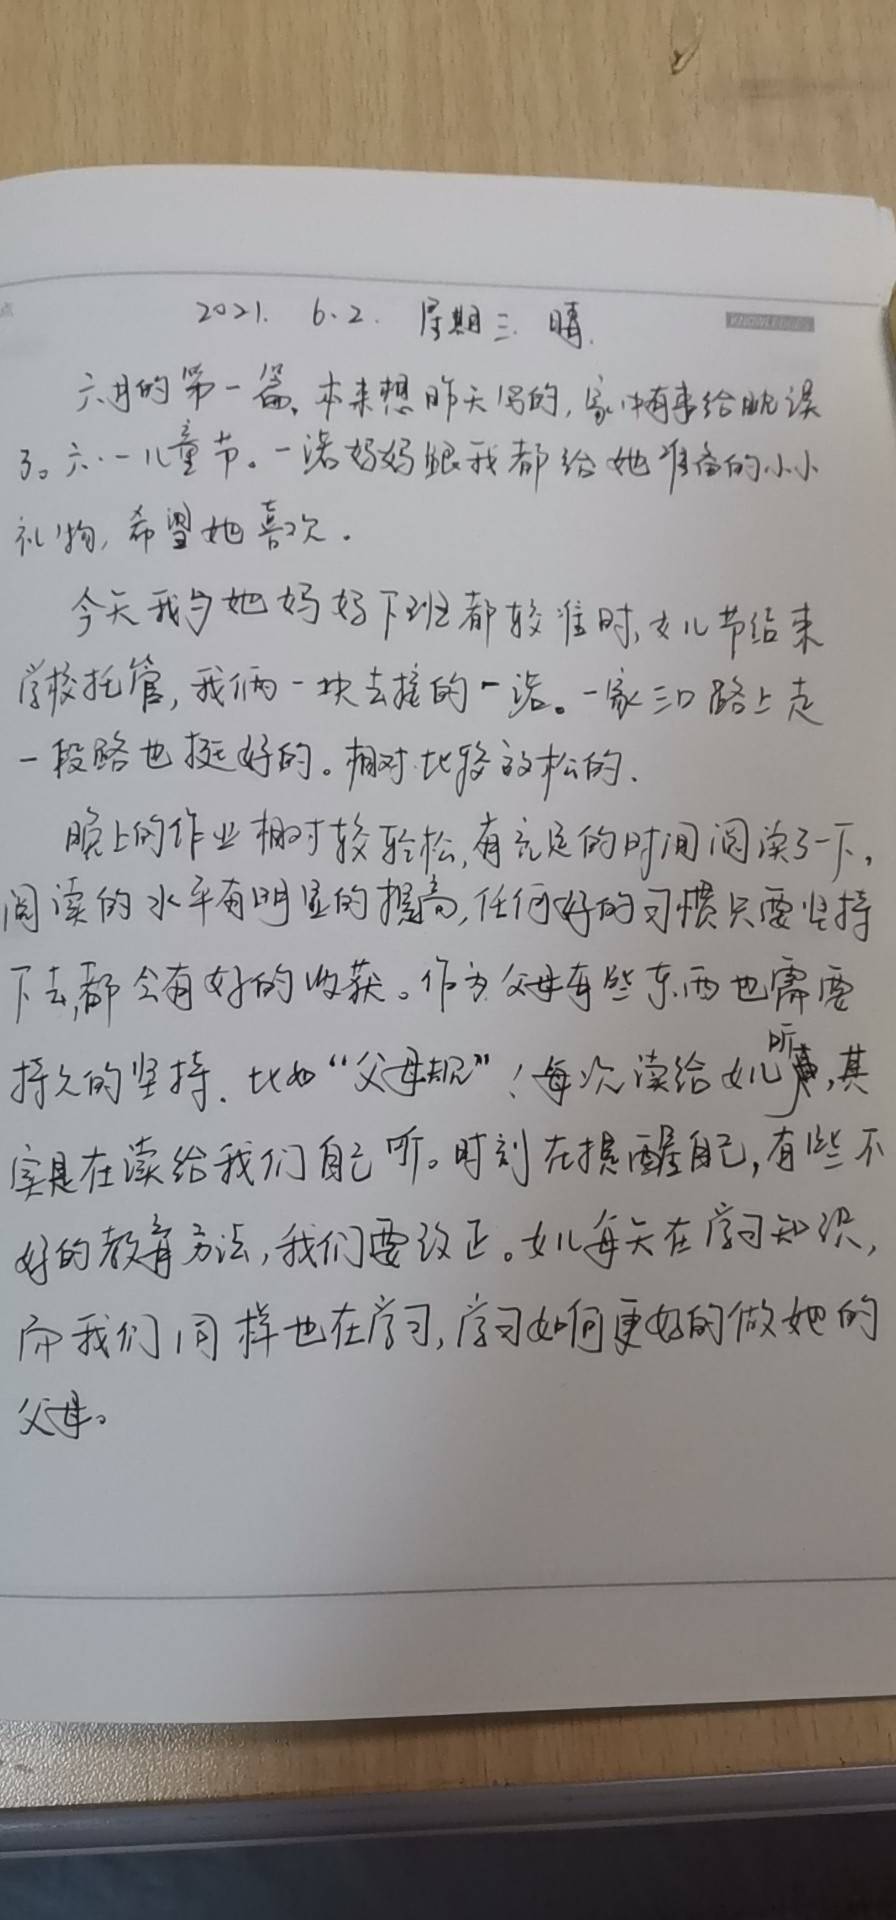 2021. 6.2. 星期三. 晴.
KNOWLEDGE
六月的第一篇、本来想昨天写的,家中有事给耽误
了。六·一儿童节。一诺妈妈跟我都给她准备的小小
礼物,希望她喜欢.
今天我与她妈妈下班都较准时,女儿节结束
学校托管,我俩一块去接的一诺。一家三口路上走
一段路也挺好的。相对比较放松的.
晚上的作业相对较轻松,有充足的时间阅读了一下,
阅读的水平有明显的提高,任何好的习惯只要坚持
下去,都会有好的收获。作为父母有些东西也需要
持久的坚持.比如“父母规”!每次读给女儿听,其
实是在读给我们自己听。时刻在提醒自己,有些不
好的教育方法,我们要改正。女儿每天在学习知识,
而我们同样也在学习,学习如何更好的做她的
父母。